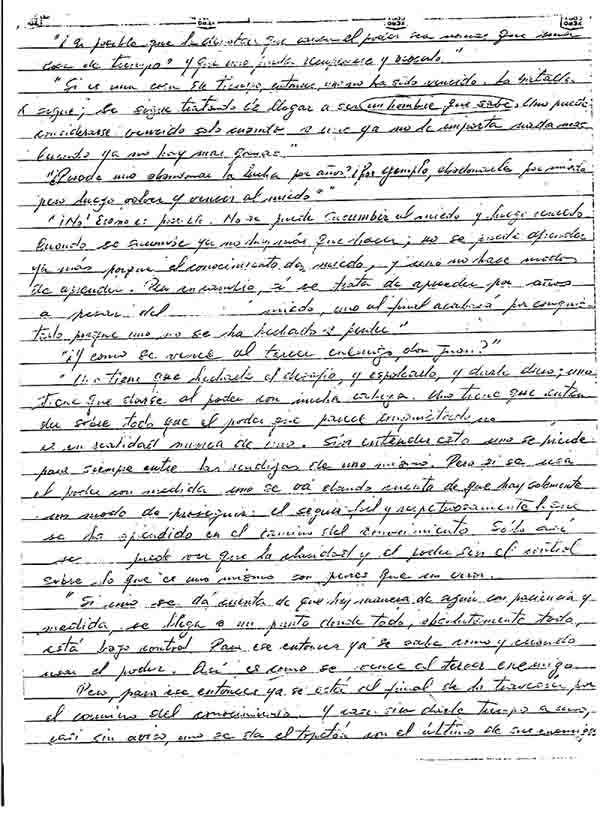 "¿Es posible que la derrota que causa el poder sea nomás que una
cosa de tiempo? Y que uno pueda recuperarse y vencerlo."
"Si es una cosa de tiempo, entonces, uno no ha sido vencido. La batalla
sigue; Se sigue tratando de llegar a ser un hombre que sabe. Uno puede
considerarse vencido solo cuando a uno ya no le importa nada mas
Cuando ya no hay mas ganas."
"¿Puede uno abandonar la lucha por años? ¿Por ejemplo, abandonarla por miedo
pero luego volver y vencer al miedo?"
"¡No! Eso no es posible. No se puede sucumbir al miedo y luego vencerlo
Cuando se sucumbe ya no hay más que hacer; no se puede aprender
ya más porque el conocimiento da miedo, y uno no hace modo
de aprender. Pero en cambio, si se trata de aprender por años
a pesar del miedo, uno al final acabará por conquis-
tarlo porque uno no se ha hechado a perder"
"¿Y como se vence al tercer enemigo, don Juan?"
"Uno tiene que hecharle el desafio, y duro; uno
tiene que darse al poder con mucha Uno tiene que enten-
der sobre todo que el poder que parece conquistado
es en realidad nunca de uno. Sin entender esto uno se pierde
para siempre entre las rendijas de uno mismo. Pero si se usa
el poder con medida uno se va dando cuenta de que hay solamente
un modo de proseguir: el seguir fiel y respetuosamente lo que
se ha aprendido en el camino del conocimiento. Sólo así
se puede ver que la claridad y el poder sin el control
sobre lo que es uno mismo son peores que un error.
"Si uno se dá cuenta de que hay manera de seguir con paciencia y
medida, se llega a un punto donde todo, absolutamente todo,
está bajo control. Para ese entonces ya se sabe como y cuando
usar el poder. Así es como se vence al tercer enemigo.
Pero, para ese entonces ya se está al final de la travesia por
el camino del conocimiento. Y casi sin darle tiempo a uno,
casi sin aviso, uno se da el topetón con el último de sus enemigos